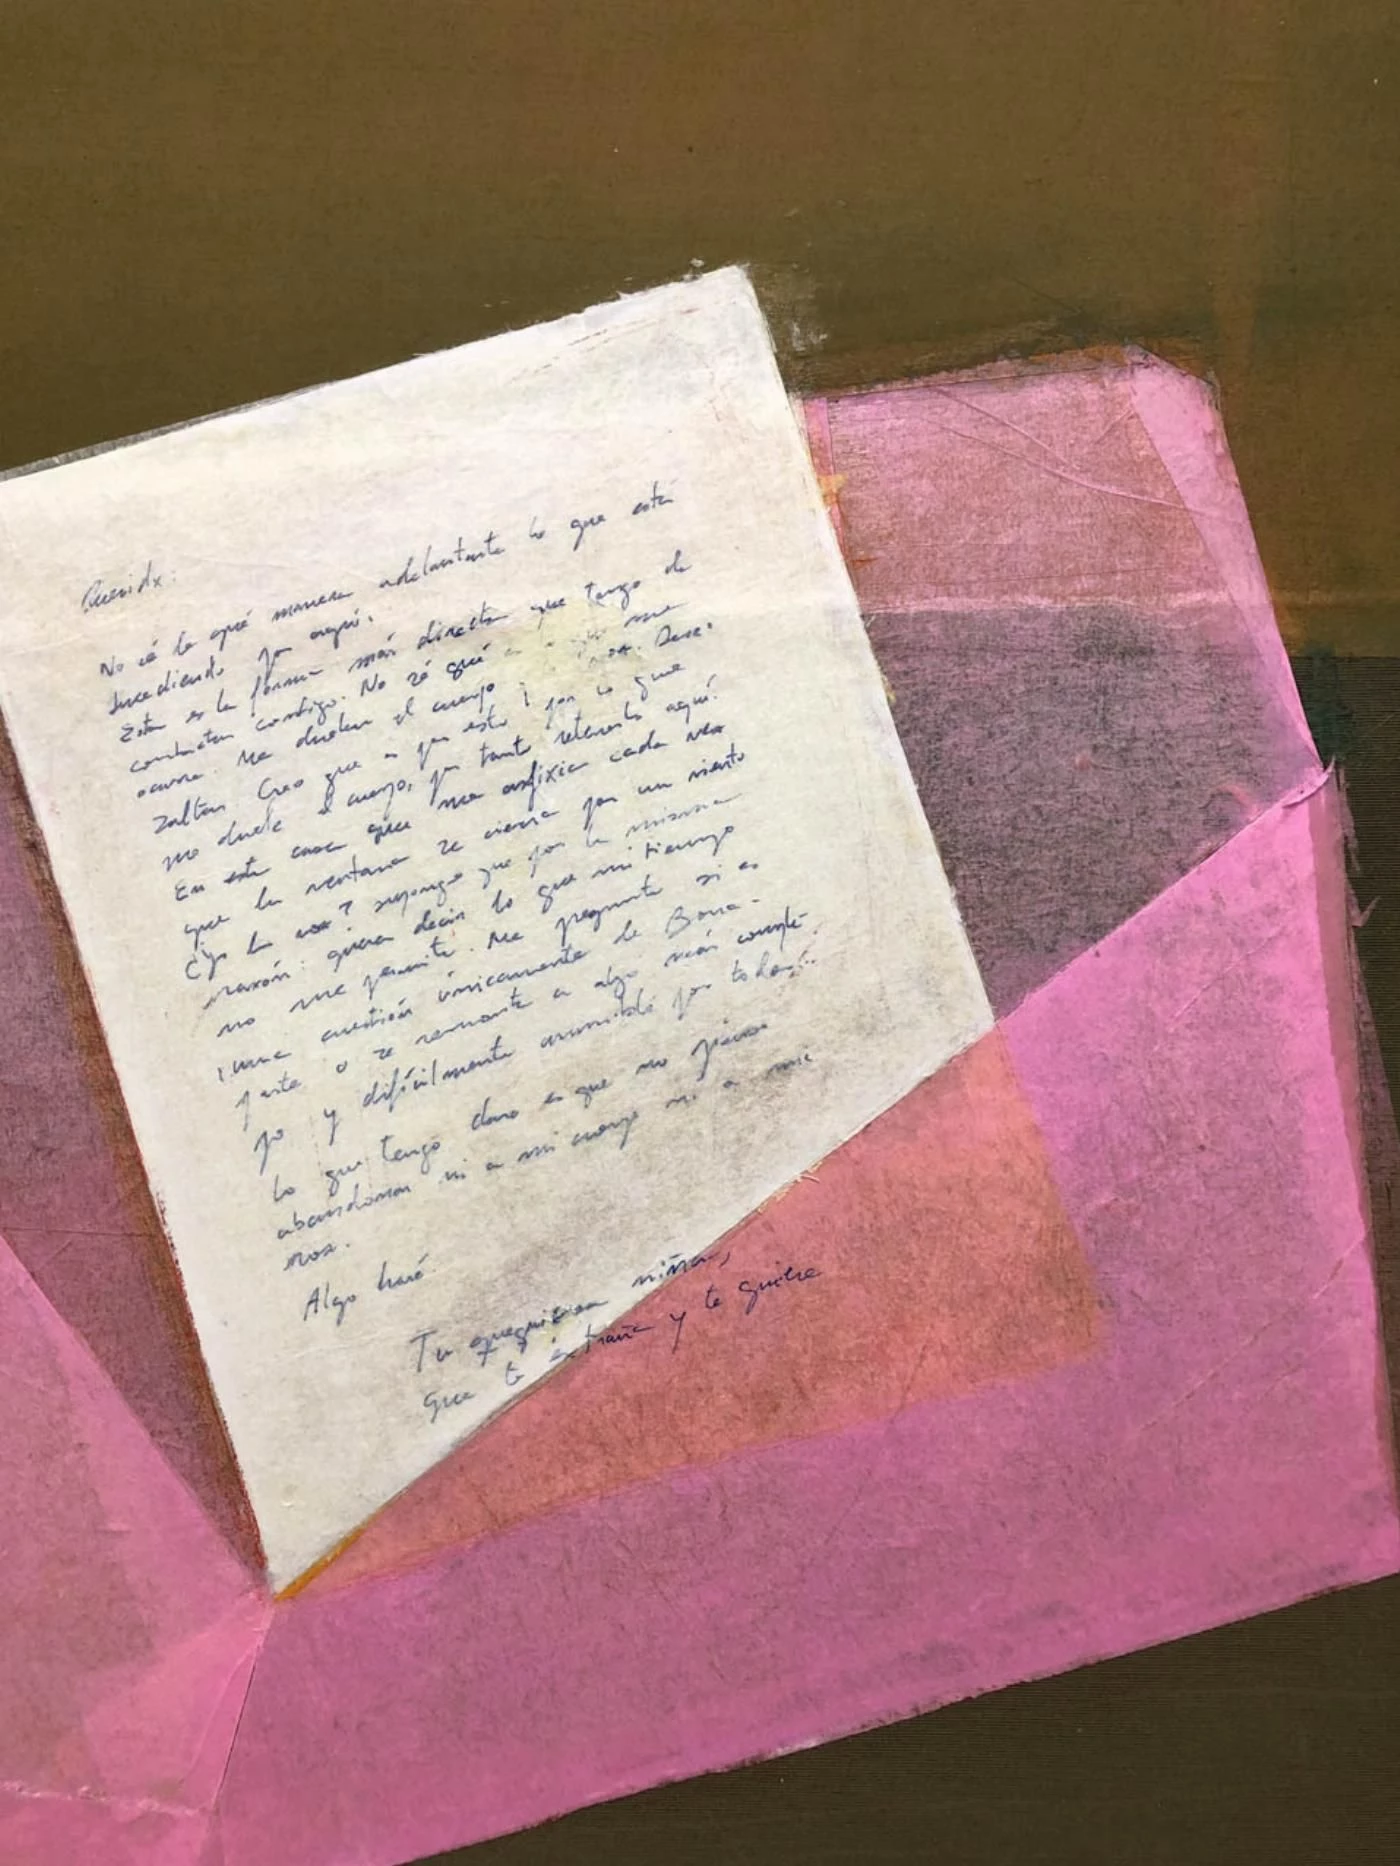 Queridx:
No sé de qué manera adelantarte lo que está
sucediendo por aquí.
Esta es la forma más directa que tengo de
contactar contigo. No sé qué es lo que me
ocurre. Me duelen el cuerpo y la voz. Dese.
saltan. Creo que es por esto, por lo que
me duele el cuerpo, por tanto retenerlo aquí.
En esta casa que me asfixia cada vez
que la ventana se cierra por un viento
¿Y la voz? supongo que por la misma
razón: querer decir lo que mi tiempo
no me permite. Me pregunto si es
una cuestión únicamente de Bona-
parte o se remonta a algo más comple-
jo y difícilmente asumible por todxs.
Lo que tengo claro es que no pienso
abandonar ni a mi cuerpo ni a mi
voz.
Algo haré.
Tu niña,
que te extraña y te quiere